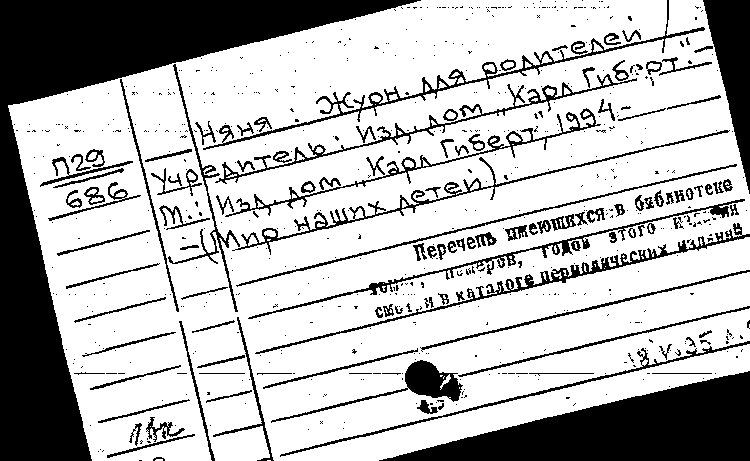 П29
686
Няня : Журн. для родителей /
Учредитель : Изд. дом „Карл Гиберт". –
М.: Изд. дом „Карл Гиберт", 1994 -
. – (Мир наших детей).
Перечень имеющихся в библиотеке
томов, номеров, годов этого издания
смотри в каталоге периодических изданий
18.V.95